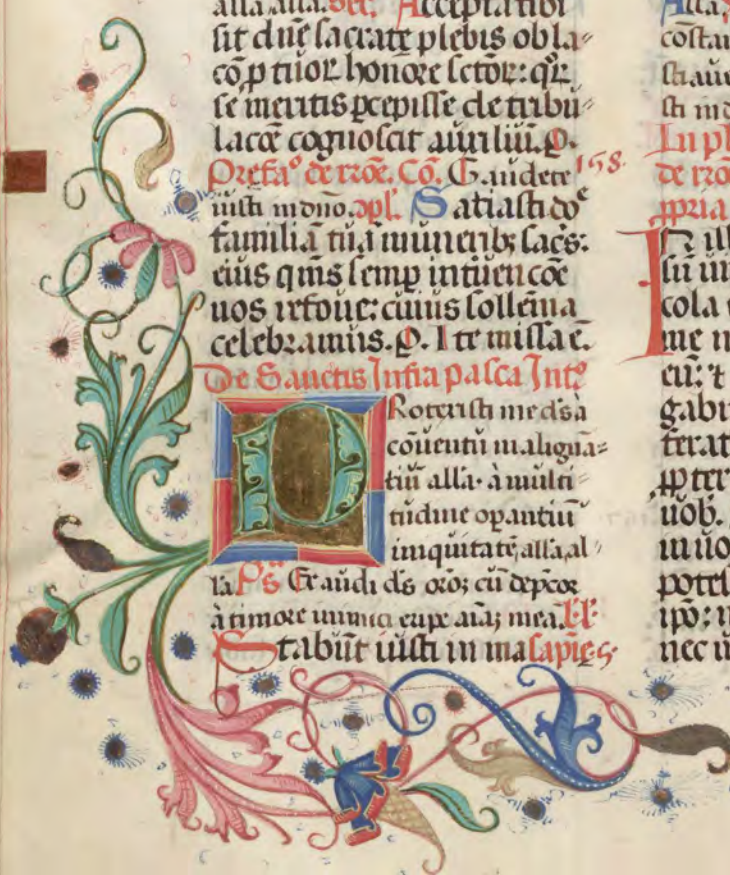 alla alla. Sec. Accepta tibi
sit dñe sacrate plebis obla
cõ p tuoꝝ honore sctoꝝ: qͥꝝ
se meritis pcepisse de tribu
lacõe cognoscit auxiliũ. p.
Prefaº de Cõ. Gaudete 158.
iusti in dño. ɔpl. Satiasti dñe
familiã tuã munerib; sacs:
eius qms semp intũencõe
nos refoue: cuius sollẽnia
celebramus. p. Ite missa ẽ.
De Sanctis Infra pasca Intº
PRotexisti me ds a
cõuentu maligna
tiũ alla. a multi
tudine opantiũ
iniquitatẽ, alla, al
la Ps Exaudi ds orõꝫ cũ depcor
a timore inimici eripe aiãꝫ meã.
Stabũt iusti in ma sapie. 5.
Alla.
cõstan
de
ppria
In ill
cola
me
eũ: ⁊
gabi
ferat
uob.
potes
ipõ: n
nec u